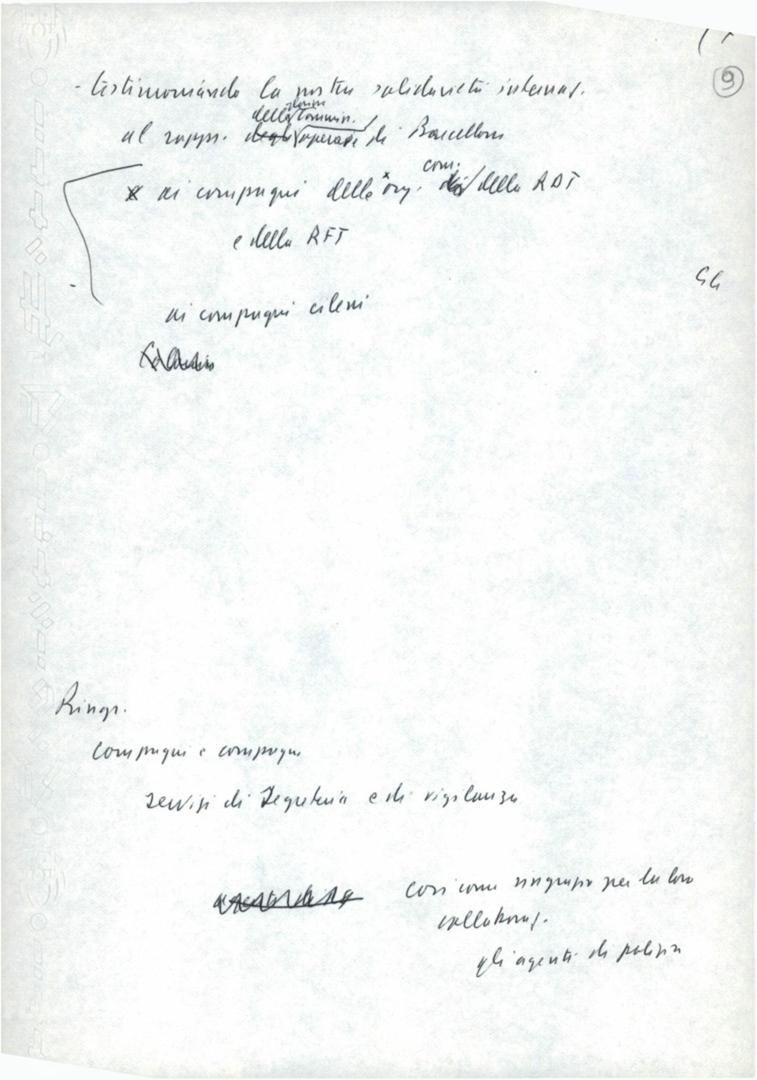 9
- testimoniando la nostra solidarietà internaz.
della Commiss.
al rappr. operaie di Barcellona
com.
ai compagni delle org. della RDT
e della RFT
ai compagni cileni
Ringr.
Compagni e compagne
servizi di Segreteria e di vigilanza
così come ringrazio per la loro
collaboraz.
gli agenti di polizia